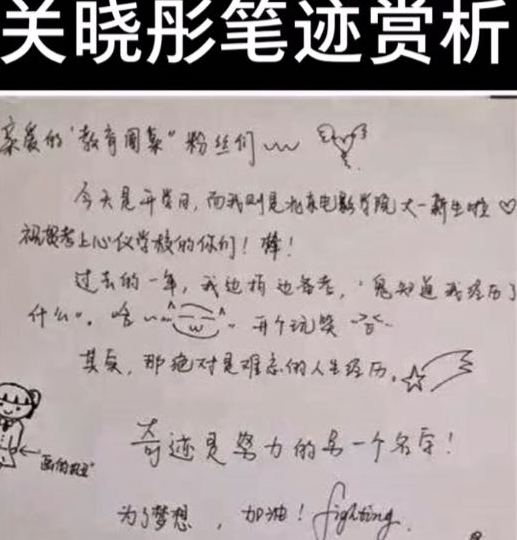 关晓彤笔迹赏析
亲爱的"教育圈菜"粉丝们~~
今天是开学日，而我则是北京电影学院大一新生啦♡
祝贺考上心仪学校的你们！棒！
过去的一年，我边拍边备考，"鬼知道我经历了
什么"。哈~~ 开个玩笑
其实，那绝对是难忘的人生经历。
奇迹是努力的另一个名字！
为了梦想，加油！fighting.